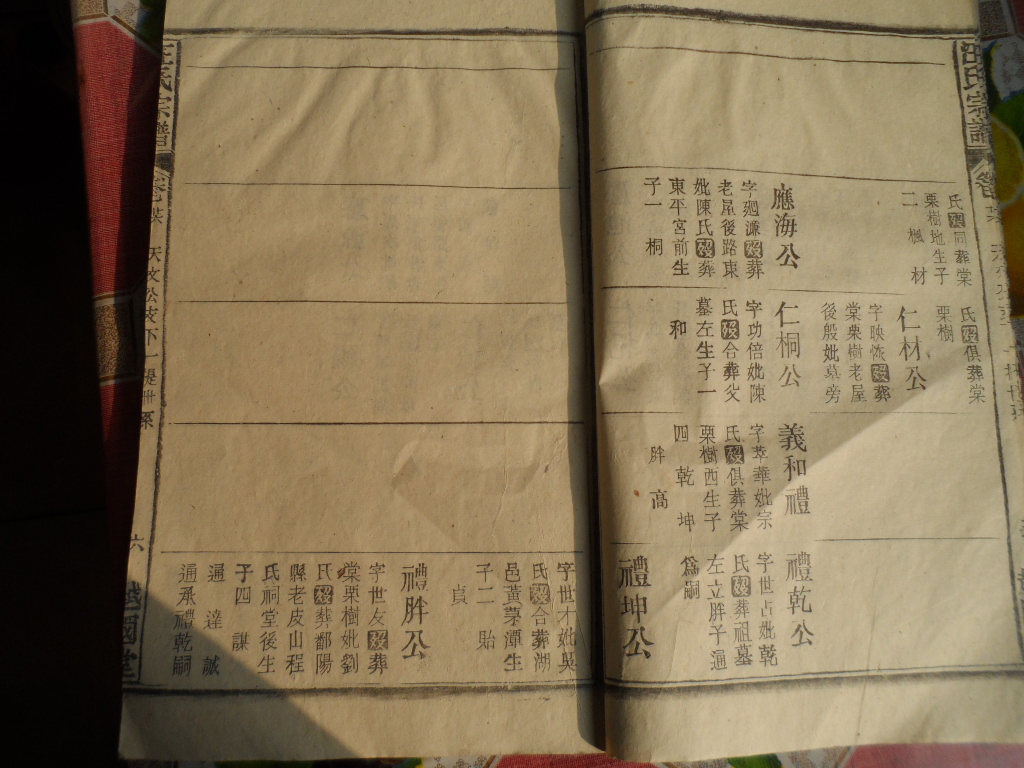 汪氏宗譜
氏歿同葬棠
栗樹地生子
二楓材
應海公
字廻濂歿葬
老屋後路東
妣陳氏歿葬
東平宮前生
子一桐
氏歿俱葬棠
栗樹
仁材公
歿葬
棠栗樹老屋
後殷妣墓旁
仁桐公
字功倍妣陳
氏歿合葬父
墓左生子一
和
義和禮
字萃華妣宗
氏歿俱葬棠
栗樹西生子
四乾坤
胖高
禮乾公
字世占妣乾
氏歿葬祖墓
左立胖子通
爲嗣
禮坤公
字世才妣吳
氏歿合葬湖
邑黃票源生
子二貽
貞
禮胖公
字世友歿葬
棠栗樹妣劉
氏歿葬鄱陽
縣老皮山程
氏祠堂後生
子四謀
通達誠
通承禮乾嗣
汪氏宗譜
天文公支下
六
越國堂